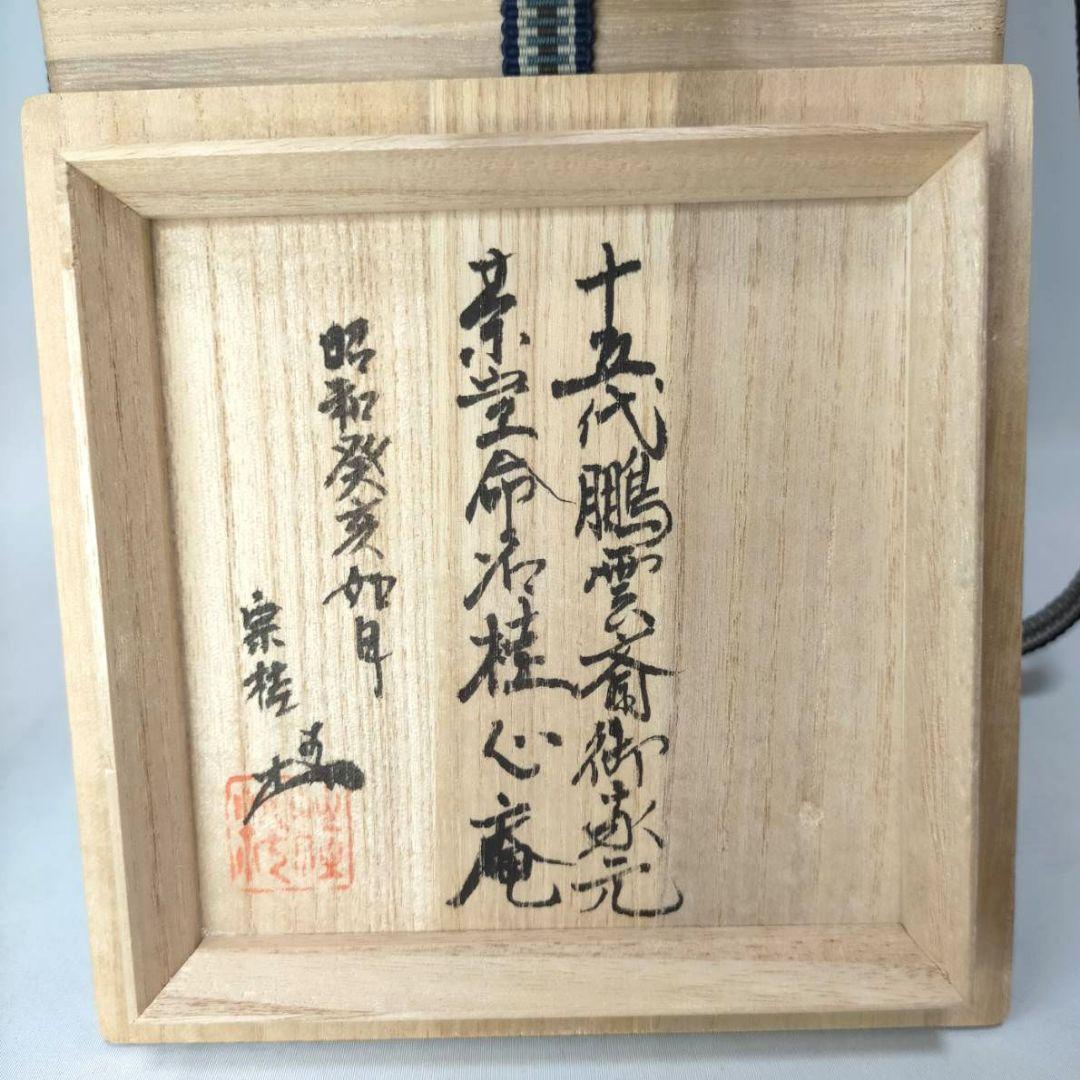 十五代鵬雲斎御家元
茶堂命名桂心庵
昭和癸亥如月
宗桂